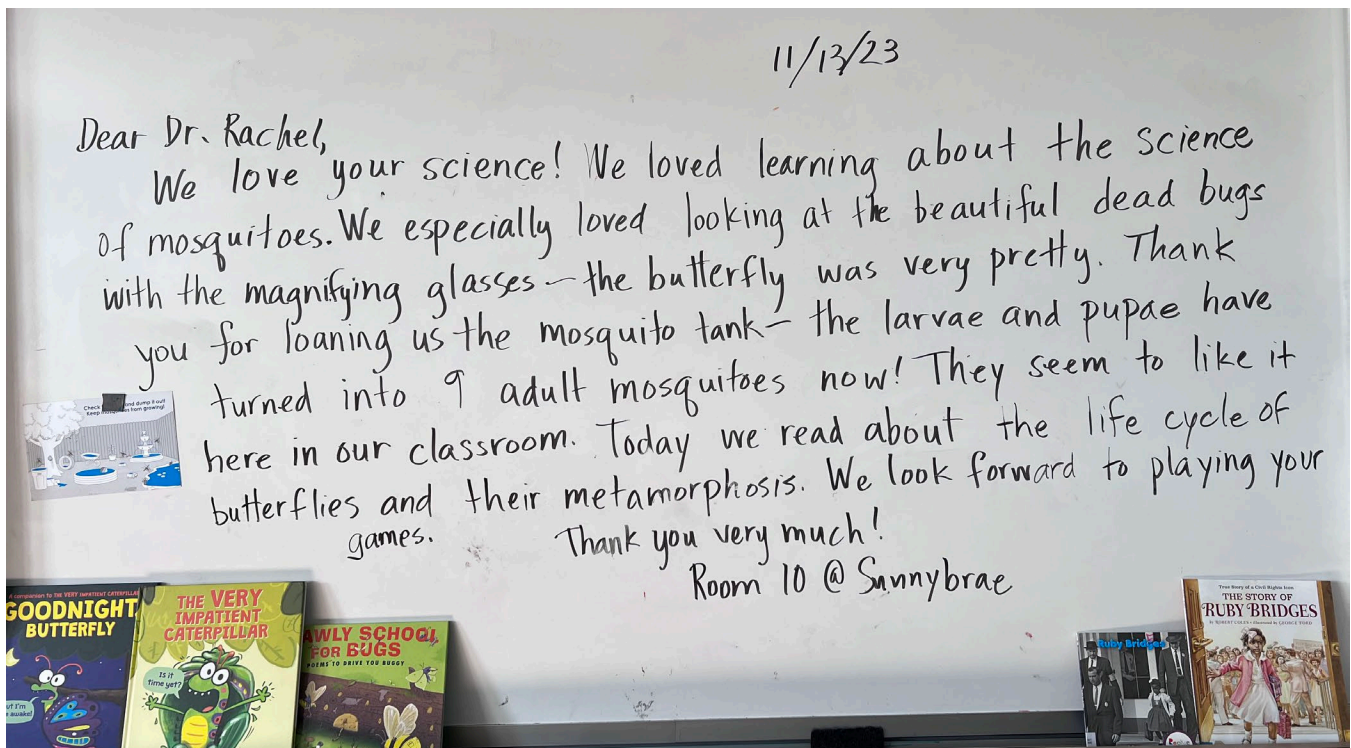 11/13/23
Dear Dr. Rachel,
We love your science! We loved learning about the science
of mosquitoes. We especially loved looking at the beautiful dead bugs
with the magnifying glasses - the butterfly was very pretty. Thank
you for loaning us the mosquito tank - the larvae and pupae have
turned into 9 adult mosquitoes now! They seem to like it
here in our classroom. Today we read about the life cycle of
butterflies and their metamorphosis. We look forward to playing your
games.
Thank you very much!
Room 10 @ Sunnybrae
Check and dump it out!
Keep from growing!
A companion to THE VERY IMPATIENT CATERPILLAR
GOODNIGHT
BUTTERFLY
THE VERY
IMPATIENT
CATERPILLAR
Is it
time yet?
AWLY SCHOOL
FOR BUGS
POEMS TO DRIVE YOU BUGGY
Ruby Bridges
True Story of a Civil Rights Icon
THE STORY OF
RUBY BRIDGES
BY ROBERT COLES Illustrated by GEORGE FORD